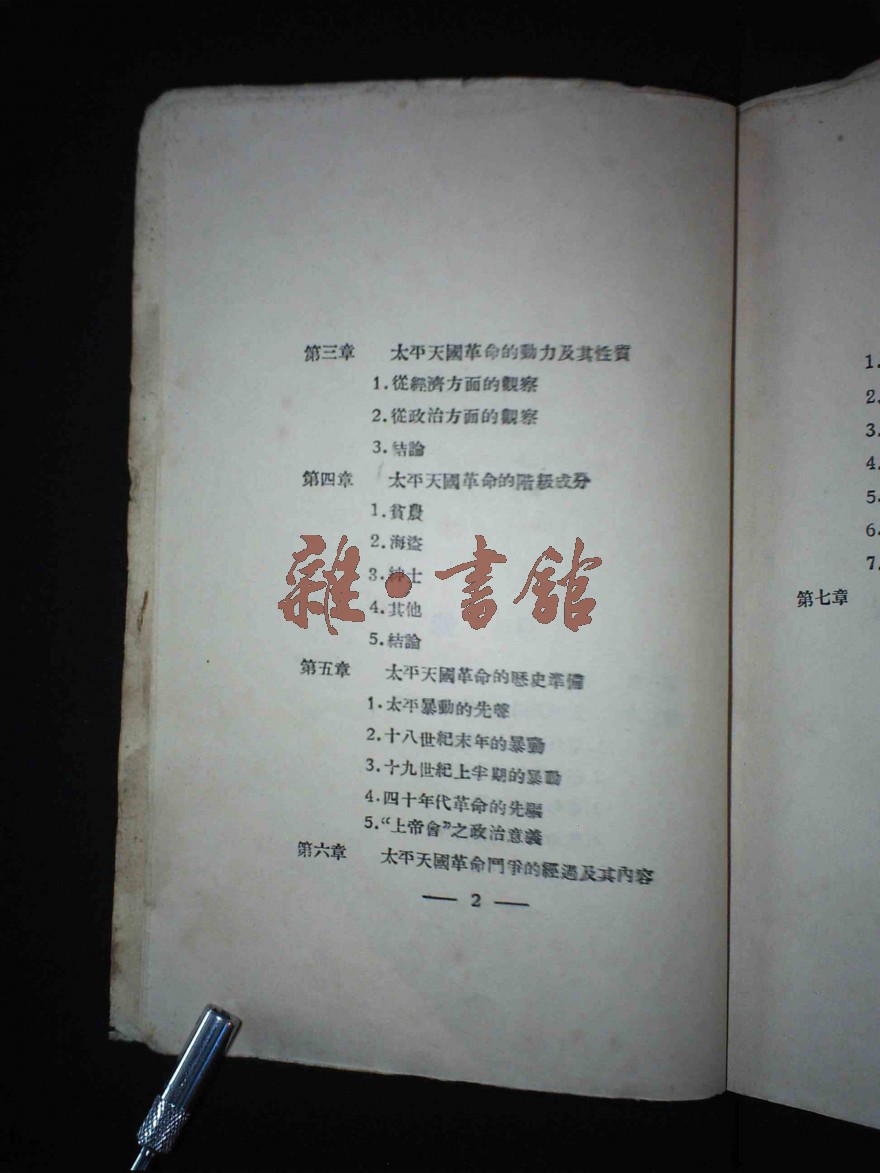 第三章 太平天國革命的動力及其性質
1.從經濟方面的觀察
2.從政治方面的觀察
3.結論
第四章 太平天國革命的階級成分
1.貧農
2.海盜
3.紳士
4.其他
5.結論
第五章 太平天國革命的歷史準備
1.太平暴動的先聲
2.十八世紀末年的暴動
3.十九世紀上半期的暴動
4.四十年代革命的先驅
5.“上帝會”之政治意義
第六章 太平天國革命鬥爭的經過及其內容
— 2 —
雜·書館
1.
2.
3.
4.
5.
6.
7.
第七章